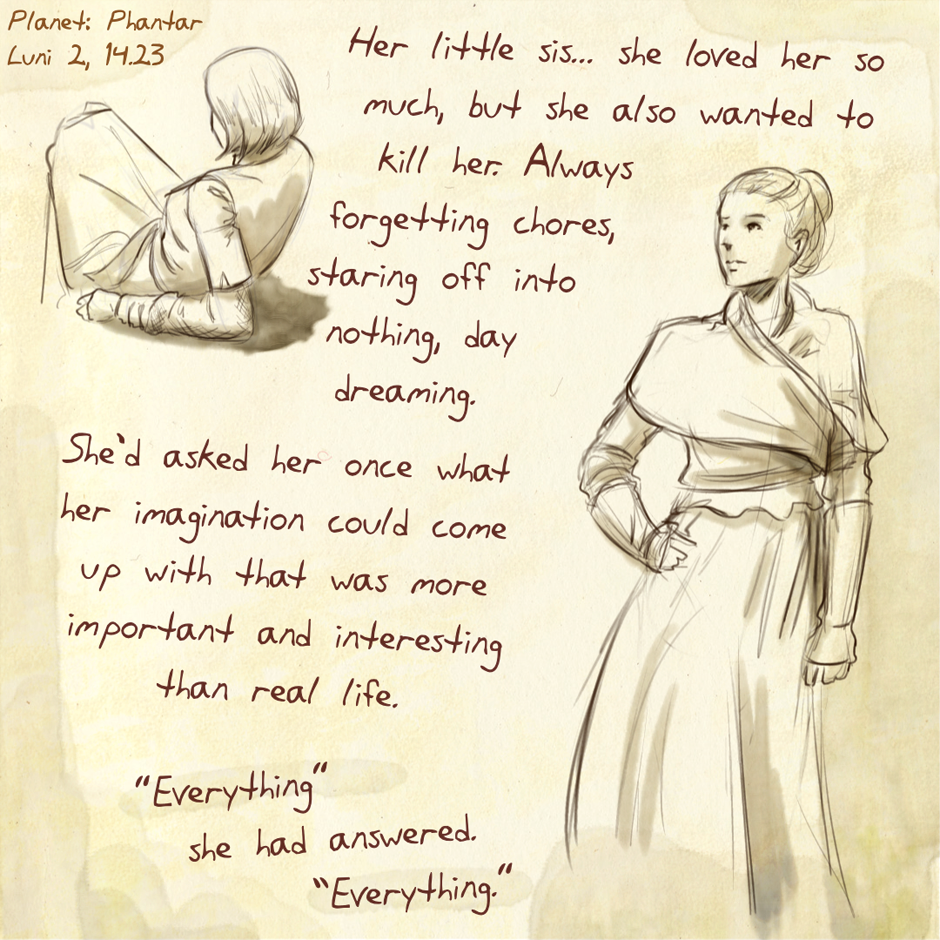 Planet: Phantar
Luni 2, 14.23
Her little sis... she loved her so
much, but she also wanted to
kill her. Always
forgetting chores,
staring off into
nothing, day
dreaming.
She'd asked her once what
her imagination could come
up with that was more
important and interesting
than real life.
"Everything"
she had answered.
"Everything."